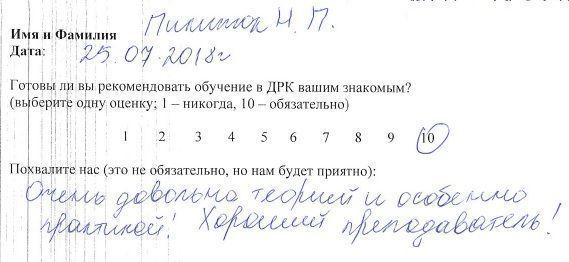 Имя и Фамилия Никитюк Н. П.
Дата: 25.07.2018г
Готовы ли вы рекомендовать обучение в ДРК вашим знакомым?
(выберите одну оценку; 1 – никогда, 10 – обязательно)
1 2 3 4 5 6 7 8 9 10
Похвалите нас (это не обязательно, но нам будет приятно):
Очень довольна теорией и особенно
практикой! Хороший преподаватель!